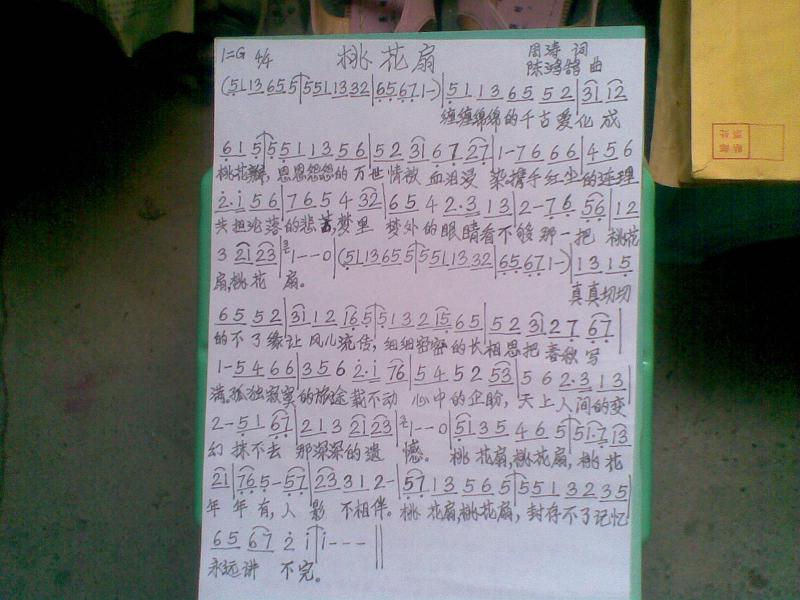 1=G 4/4 桃花扇 周涛 词
陈鸿鹄 曲
(5113655|5511332|65671-)|5113655 2|31 12
缠缠绵绵的千古爱化成
615|5511356|52 3167.27|1-7666|456
桃花瓣,恩恩怨怨的万世情被血泪浸染,携手红尘的连理
2.i56|765432|6542.313|2-7656|12
共担沦落的悲苦,梦里梦外的眼睛看不够那一把桃花
3 21 23|1--0|(5113655|5511332|65671-)|1315
扇,桃花扇。 真真切切
6552|3112165|51321565|5231 27 67|
的不了缘让风儿流传,细细密密的长相思把春秋写
1-5466|3562.i76|545253|562.313|
满。孤独寂寞的旅途载不动心中的企盼,天上人间的变
2-5167|2132123|1--0|5135465|551.713
幻抹不去那深深的遗憾。桃花扇,桃花扇,桃花
21|765-57|23312-|57135655|5513235
年年有,人影不相伴。桃花扇,桃花扇,封存不了记忆
65 67 2 i|i---||
永远讲不完。